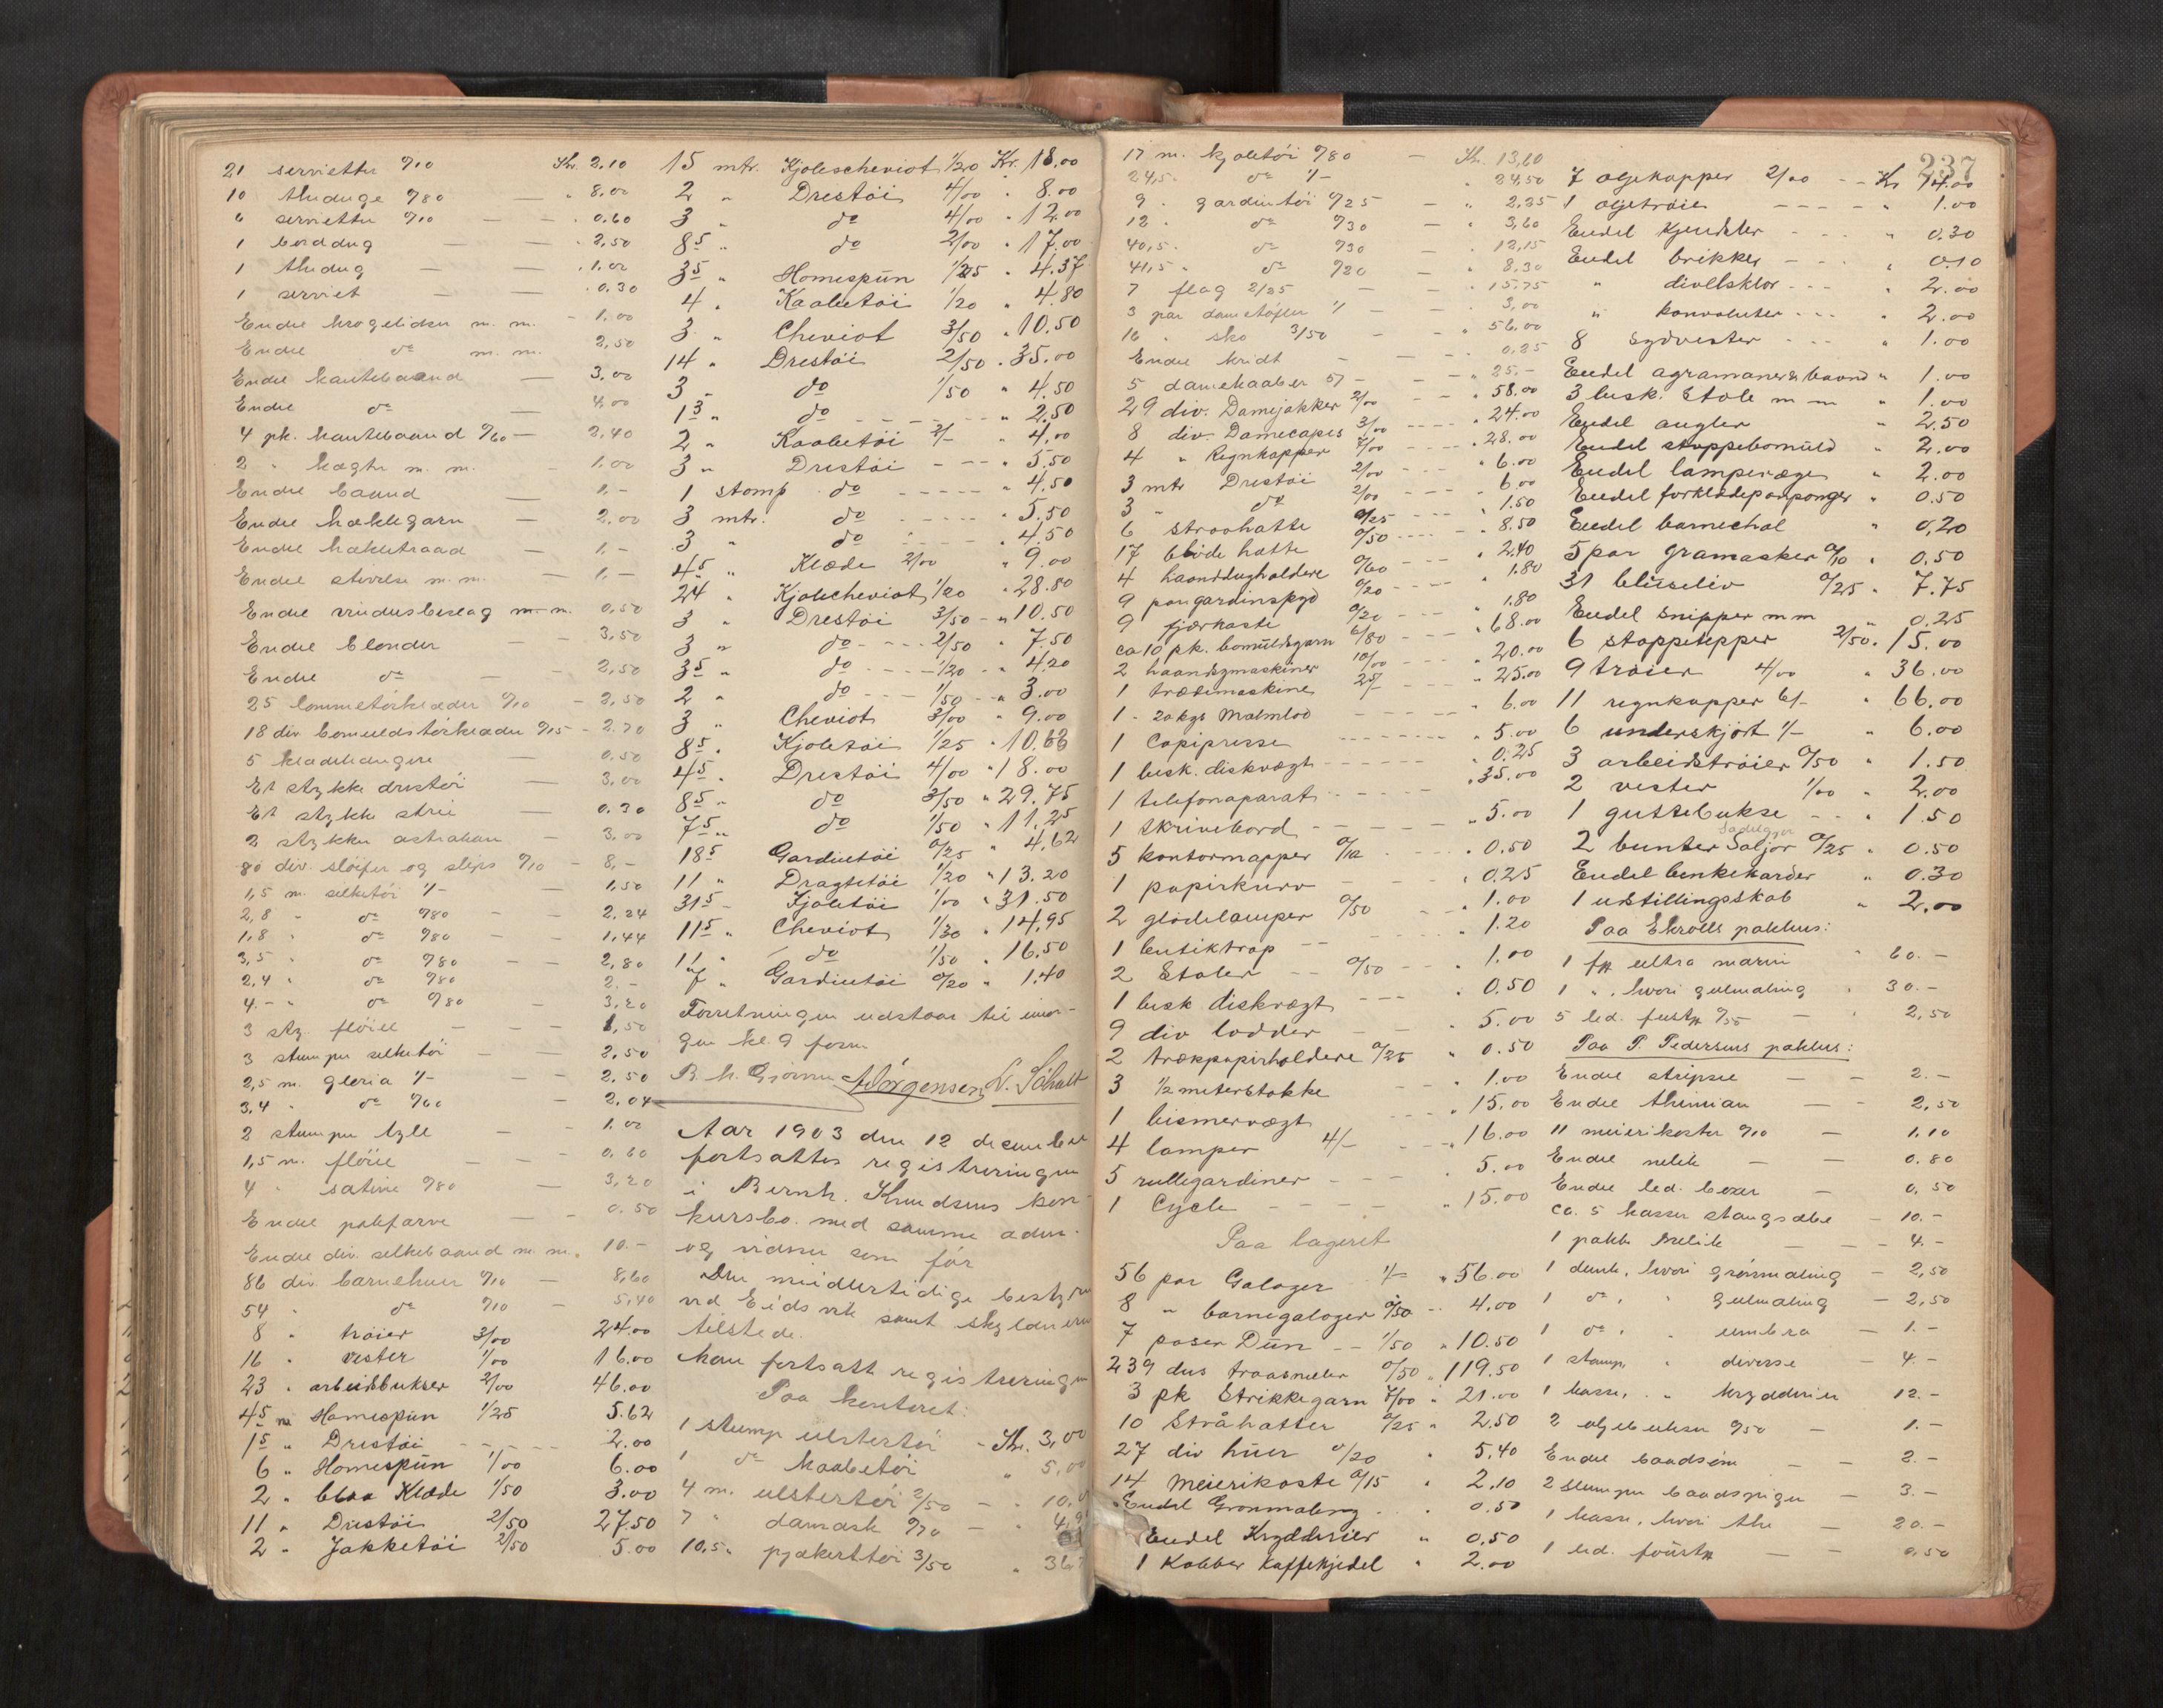 21 servietter 0/10 Kr. 2,10
10 theduge 0/80 — " 8.00
6 servietter 0/10 — — " 0.60
1 borddug — — " 2,50
1 thedug — — " 1,00
1 serviet — — " 0.30
Endel m. m. - 1,00
Endel do m. m. 2,50
Endel kantebaand — 3,00
Endel do — 4,00
4 pk. kantebaand 0/60 — 2,40
2 " hægter m. m. - 1,00
Endel baand — 1,-
Endel hæklegarn — 2,00
Endel hækletraad — 1,-
Endel stivelse m. m. — 1,-
Endel vinduesbeslag m. m. 0,50
Endel blonder — - 3,50
Endel do — - 2,50
25 lommetørklæder 0/10 - 2,50
18 div bomuldstørklæder 0/15 - 2.70
5 klædehængere — 0,50
Et stykke drestöi — 3,00
Et stykke strie — 0.30
2 stykker astrakan — 3,00
80 div. slöifer og slips 0/10 - 8,-
1,5 m. silketöi 1/- — 1,50
2,8 " do 0/80 - - 2,24
1,8 " do 0/80 - - 1,44
3,5 " do 0/80 - - 2,80
2,4 " do 0/80 2.-
4.- " do 0/80 - 3,20
3 stz. flöiel - - 1,50
3 stumper silketöi - - 2,50
2,5 m. gloria 1/- - - 2.50
3,4 " do 0/60 - 2,04
2 stumper tyll - - 1,00
1,5 m. flöiel — - 0,60
4 " satine 0/80 — 3,20
Endel palefarve — - 0.50
Endel div. silkebaand m. m. 10.-
86 div. barnehuer 0/10 — 8,60
54 " do 0/10 - 5,40
8 " tröier 3/00 24.00
16 " vester 1/00 16.00
23 " arbeidsbukser 2/00 46.00
4 5 m Homespün 1/25 5.62
1 5 " Drestöi - - - 2.00
6 " Homespün 1/00 6.00
2 " blaa Klæde 1/50 3.00
11 " Drestöi 2/50 27.50
2 " Jakketöi 2/50 5.00
15 mtr. Kjolescheviot 1/20 Kr. 18.00
2 " Drestöi 4/00 " 8.00
3 " do 4/00 " 12.00
8 5 " do 2/00 " 17.00
3 5 " Homespün 1/25 " 4.37
4 " Kaabetöi 1/20 " 4.80
3 " Cheviot 3/50 " 10.50
14 " Drestöi 2/50 " 35.00
3 " do 1/50 " 4.50
1 3 " do - - - " 2.50
2 " Kaabetöi 2/- " 4.00
3 " Drestöi - - - " 5.50
1 stomp do - - - - " 4.50
3 mtr. do - - - - " 5.50
3 " do - - - - " 4.50
4 5 " Klæde 2/00 " 9.00
24 " Kjolecheviot 1/20 " 28.80
3 " Drestöi 3/50 - " 10.50
3 " do - - - 2/50 " 7.50
3 5 " do - - - 1/20 " 4.20
2 " do - - - 1/50 - " 3.00
3 " Cheviot 3/00 " 9.00
8 5 " Kjoletöi 1/25 " 10.63
4 5 " Drestöi 4/00 " 18.00
8 5 " do 3/50 " 29.75
7 5 " do 1/50 " 11.25
18 5 Gardintöi 0/25 " 4.62
11 " Dragttöi 1/20 " 13.20
31 5 - Kjoletöi 1/00 " 31.50
11 5 " Cheviot 1/30 " 14.95
11 " do 1/50 " 16.50
7 " Gardintöi 0/20 " 1.40
Forretningen udstaar til imor-
gen kl. 9 form
B. M. Gjörme A Jörgensen N. Schult
Aar 1903 den 12 december
fortsattes registreringen
i Bernh. Knudsens kon-
kursbo med samme adm.
og vidner som för
Den midlertidige bestyrer
ved Eidsvik samt skyldneren
tilstede.
Man fortsatte registreringen
Paa kontoret:
1 stump ulstertöi - Kr. 3,00
1 do kaabetöi " 5,00
4 m. ulstertöi 2/50 - " 10,
7 " damask 0/70 - " 4,9
10,5 " pjækerttöi 3/50 " 36,
237
17 m. kjoletöi 0/80 - Kr. 13,60
24,5 " do 1/- " 24,50
9 " gardintöi 0/25 - " 2,25
12 " do 0/30 - " 3,60
40,5 " do 0/30 - " 12,15
41,5 " do 0/20 - " 8,30
7 flag 2/25 - " 15,75
3 par dametöfler 1/- - " 3,00
16 " sko 3/50 - - " 56,00
Endel kridt - - 0,25
5 damekaaber 5/- - - " 25.-
29 div. Damejakker 2/00 - - " 58.00
8 div. Damecapes 3/00 - - - - " 24.00
4 " Regnkapper 7/00 - - - - " 28.00
3 mtr Drestöi 2/00 - - - " 6.00
3 " do 2/00 - - - " 6.00
6 straahatte 0/25 - - - " 1.50
17 blöde hatte 0/50 - - - - " 8.50
4 haanddugholdere 0/60 - - - " 2.40
9 par gardinspyd 0/20 - - - " 1.80
9 fjærkoste 0/20 - - - " 1.80
ca 10 pk. bomüldsgarn 6/80 - - - " 68.00
2 haandsymaskiner 10/00 - - - " 20.00
1 trædemaskine 25/- - - - " 25.00
1 - 20 kgs Malmlod - - - - " 6.00
1 Copipresse - - - - " 5.00
1 besk. diskvægt - - - - - " 0.25
1 telefonaparat - - - - - " 35.00
1 skrivebord - - - " 5.00
5 kontormapper 0/10 " 0.50
1 papirkurv - - - " 0.25
2 glödelamper 0/50 - - " 1.00
1 butiktrap - - " 1.20
2 Stoler - - 0/50 - - " 1.00
1 besk diskvægt - - - " 0.50
9 div lodder - - " 5.00
2 trækpapirholdere 0/25 " 0.50
3 1/2 meterstokke - - " 1.00
1 bismervægt - - - " 15.00
4 lamper 4/- - - - " 16.00
5 rullegardiner - - - " 5.00
1 Cycle - - - - - " 15.00
Paa lageret
56 par Galoger 1/- " 56.00
8 " barnegaloger 0/50 - - 4.00
7 poser Dün - - 1/50 " 10.50
239 dus traasneller 0/50 " 119.50
3 pk Strikkegarn 7/00 " 21.00
10 Stråhatter 0/25 " 2.50
27 div hüer 0/20 " 5.40
14 Meierikoste 0/15 " 2.10
Endel Grönmaling " 0.50
Endel Krydderier " 0.50
1 Kobber Kaffekjedel " 2.00
7 oljekapper 2/00 - - Kr 14.00
1 oljetröie - - - - " 1.00
Endel - - - " 0.30
Endel brikker - - - " 0.10
" - - - " 2.00
" konvoluter - - - " 2.00
8 sydvester - - - " 1.00
Endel agramaner & baand " 1.00
3 besk. Stole m m " 1.00
Endel angler " 2.50
Endel stoppebomüld " 2.00
Endel lampevæger " 2.00
Endel forklædeponponger " 0.50
Endel barnechal " 0.20
5 par gramasker 0/10 " 0.50
31 blüseliv 0/25 " 7.75
Endel snipper m m " 0.25
6 stoppetepper 2/50 " 15.00
9 tröier 4/00 " 36.00
11 regnkapper 6/- " 66.00
6 underskjört 1/- " 6.00
3 arbeidströier 0/50 " 1.50
2 vester 1/00 " 2.00
1 guttebukse - - " 1.50
2 bunter Saljor 0/25 " 0.50
Endel benkekarder " 0.30
1 udstillingsskab " 2.00
Paa Ekrolls pakhus:
1 ultra marin " 60.-
1 " , hvori gulmaling " 30.-
5 led. 0/50 - 2,50
Paa P. Pedersens pakhus:
Endel - - 2.-
Endel thimian - - 2,50
11 meierikoster 0/10 - 1,10
Endel nelik - - 0.80
Endel led. boxer - 0,50
ca. 5 kasser stangsæbe - 10.-
1 pakke nelik - - 4.-
1 dunk, hvori grönmaling - 2,50
1 do , " gulmaling - 2,50
1 do , " umbra - 1.-
1 stamp, " diverse - 4.-
1 kasse, " krydderier 12.-
2 oljebukser 0/50 - 1.-
Endel baadsöm - - 2.-
2 stumper - 3.-
1 kasse, hvori the - 20.-
1 led. - - 0,50